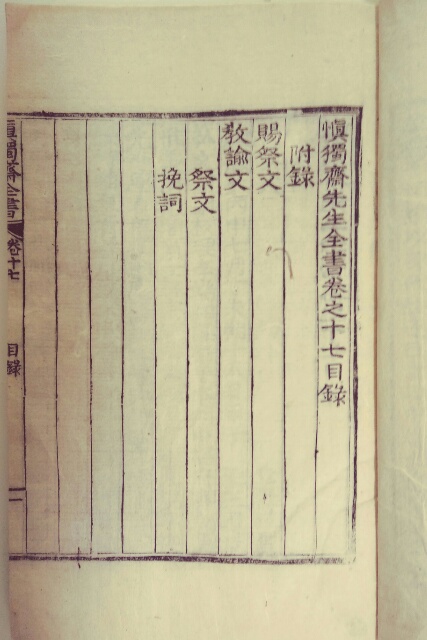 愼獨齋先生全書卷之十七目錄
附錄
賜祭文
敎諭文
祭文
挽詞
愼獨齋全書 卷十七 目錄 一